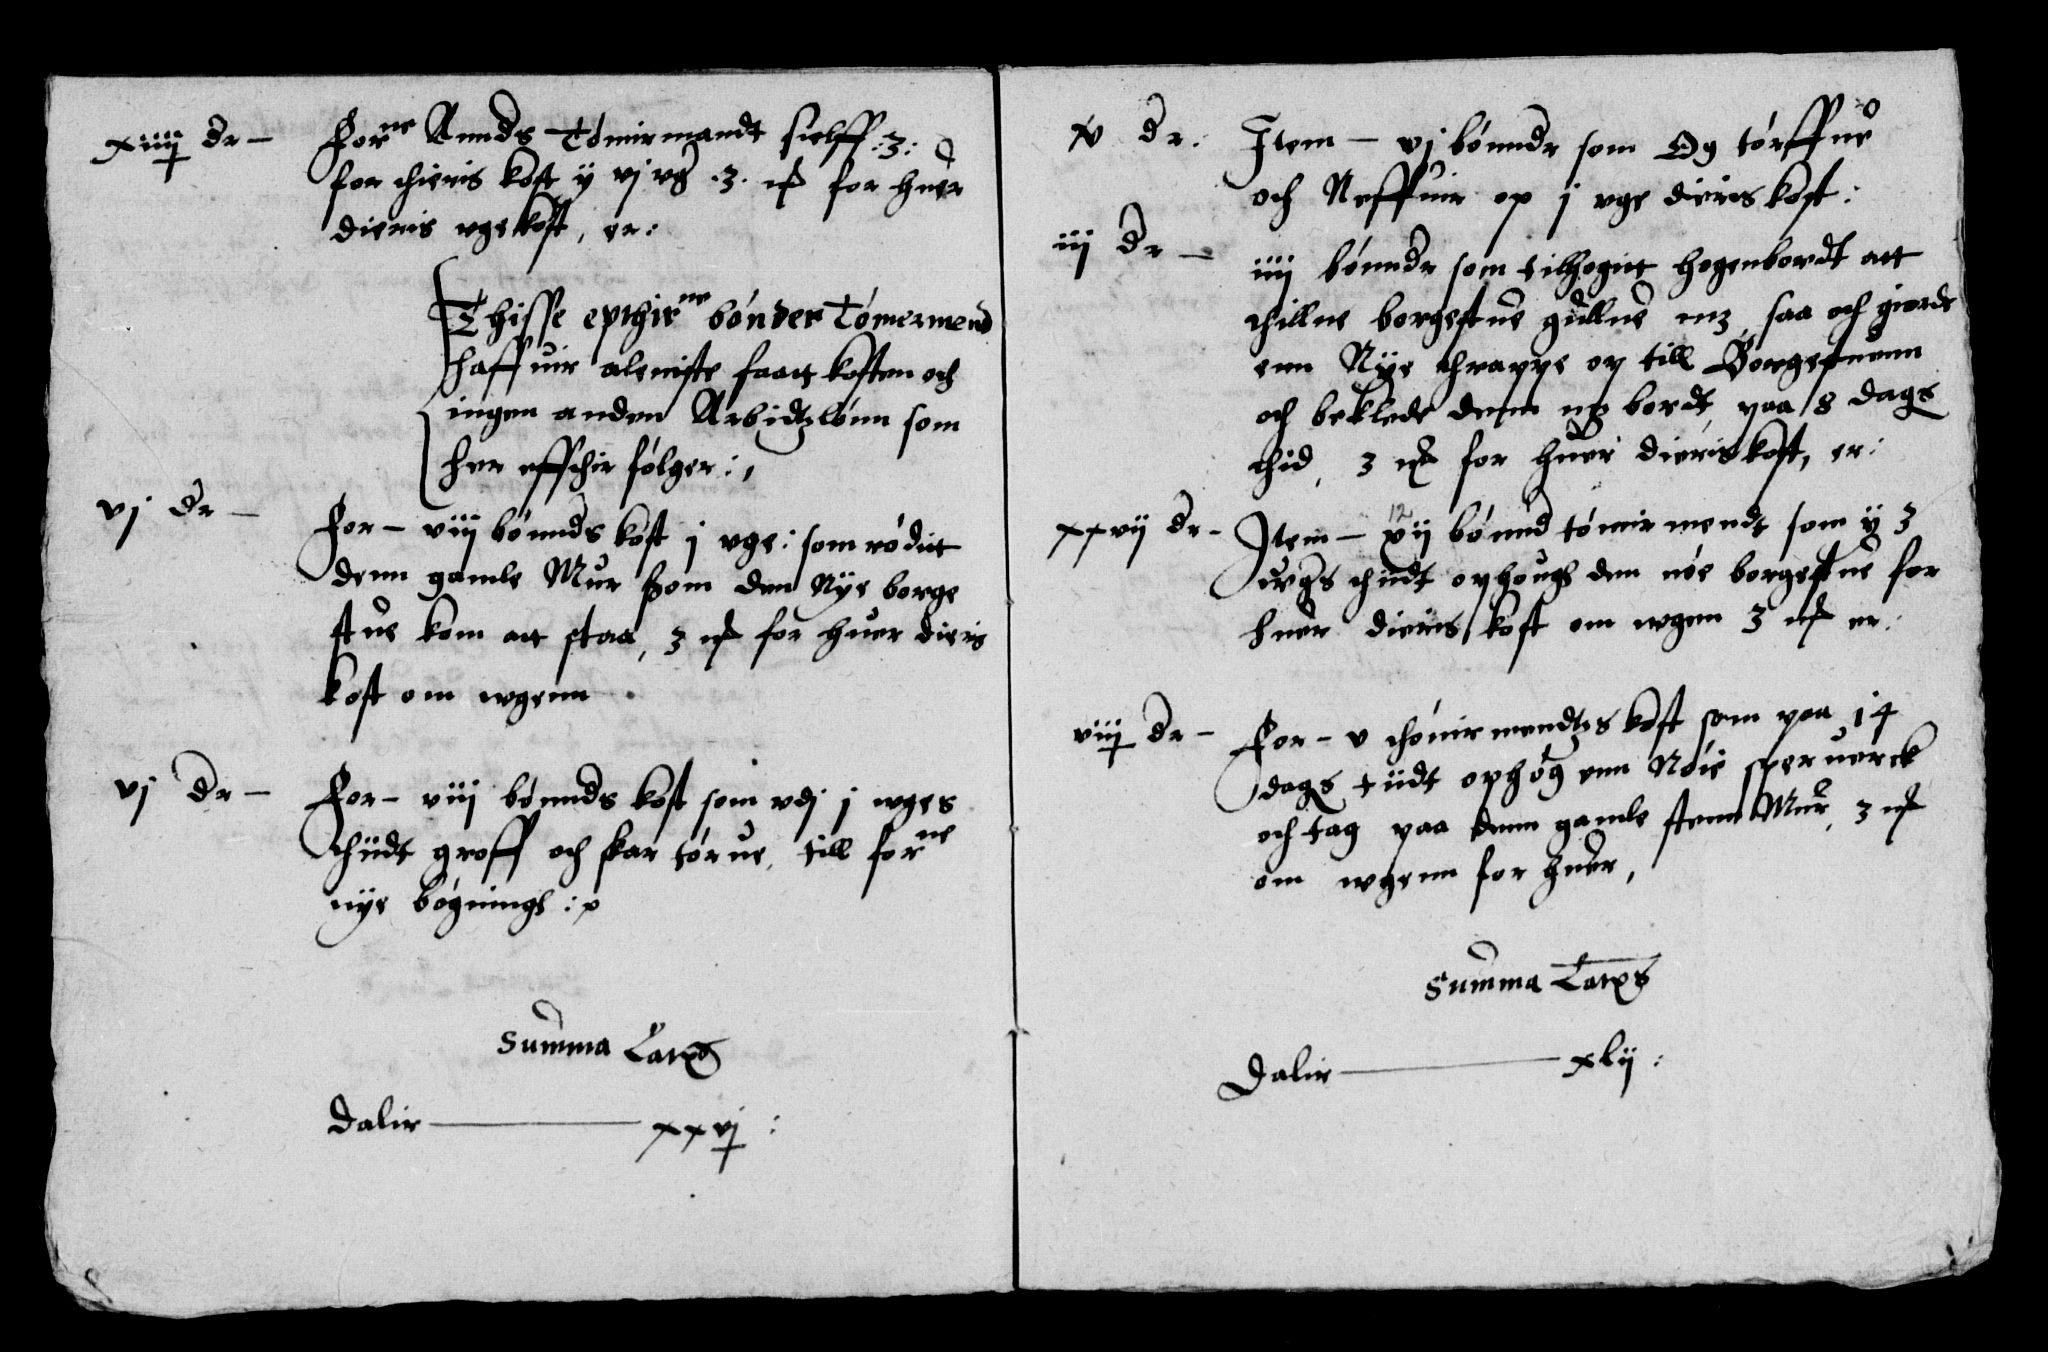 xiiij dr – ForneAnnds Tømirmandt sielff :3:
for thieris kost y vj vgs .3. mk for huer
dieris vgekost, er:
Thisse epthirne bønder Tømermend
haffuir aleniste faatt kosten och
ingen anden Arbidtzlønn som
her effthir følger:,
vj dr – For – viij bønnds kost j vge: som rødiit
denn gamle Mur som den Nye borge
stue kom att staa, 3 mk for huer dieris
kost om wgenn
vj dr – For – viij bønnds kost som vdj j wges
thiidt groff och skar tørue, till forne
nye bøgningh :
Summa Lateris
Dalir — xxvj :
v dr. Item – vj bønndr som Og tørffue
och Neffuir op j vge dieris kost:
iij dr – iiij bønndr som tilhogiit hogenbordt att
thillne borgestue gullue mz, saa och giorde
enn Nye thrappe op till Borgestuenn
och beklede denn mz bordt, paa 8 dags
thid, 3 mk for huer dieris kost, er:
xxvij dr – Item – xij bønnd tømir mendt som y 3
12
wgs thiidt ophough den nøe borgestue for
huer dieris kost om wgen 3 mk er:
viij dr – For – v thømir mendtzs kost som paa 14
dags tiidt ophøg enn Nøie speruerck
och tag paa denn gamle stenn Mur, 3 mk
om wgenn for huer,
Summa Lateris
Dalir — xlij :